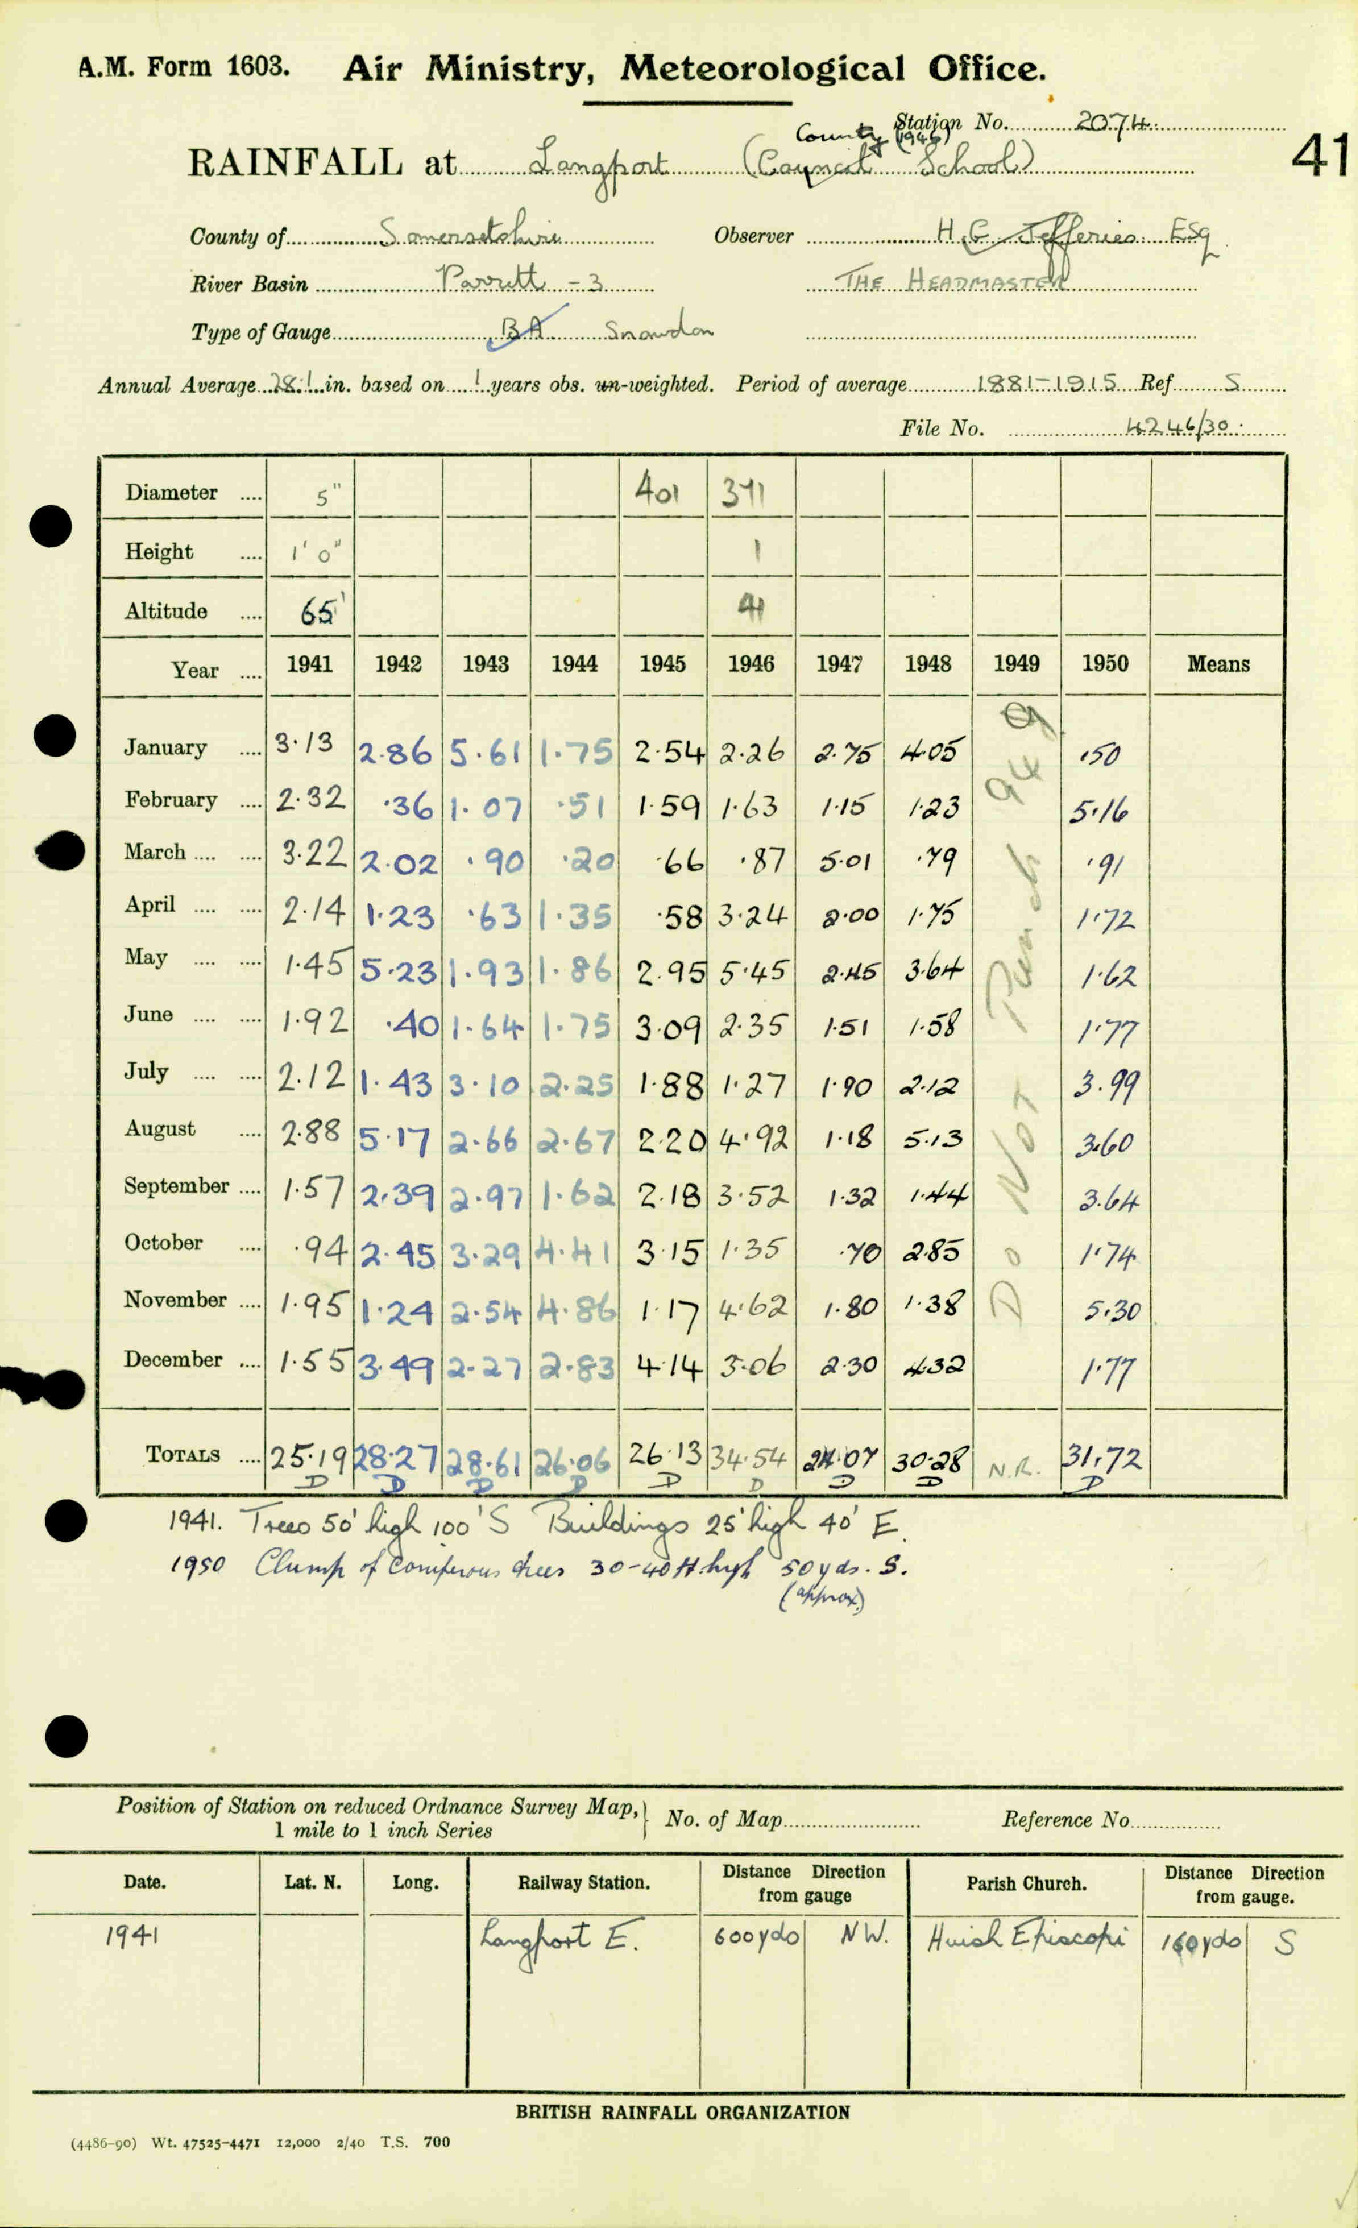 A.M. Form 1603. Air Ministry, Meteorological Office.
Station No. 2074
County (1946)
RAINFALL at Langport (Council School) 41
County of Somersetshire Observer H. G. Jefferies Esq
River Basin Parrett - 3 THE HEADMASTER
Type of Gauge BA Snowdon
Annual Average 28.1 in. based on 1 years obs. un-weighted. Period of average 1881-1915 Ref S
File No. 4246/30
Diameter .... 5" 401 371
Height .... 1' 0" 1
Altitude .... 65'
Year .... 1941 1942 1943 1944 1945 1946 1947 1948 1949 1950 Means
January .... 3.13 2.86 5.61 1.75 2.54 2.26 2.75 4.05 .50
February .... 2.32 .36 1.07 .51 1.59 1.63 1.15 1.23 5.16
March .... .... 3.22 2.02 .90 .20 .66 .87 5.01 .79 .91
April .... .... 2.14 1.23 .63 1.35 .58 3.24 2.00 1.75 1.72
May .... .... 1.45 5.23 1.93 1.86 2.95 5.45 2.45 3.64 1.62
June .... .... 1.92 .40 1.64 1.75 3.09 2.35 1.51 1.58 1.77
July .... .... 2.12 1.43 3.10 2.25 1.88 1.27 1.90 2.12 3.99
August .... 2.88 5.17 2.66 2.67 2.20 4.92 1.18 5.13 3.60
September .... 1.57 2.39 2.97 1.62 2.18 3.52 1.32 1.44 3.64
October .... .94 2.45 3.29 4.41 3.15 1.35 .70 2.85 1.74
November .... 1.95 1.24 2.54 4.86 1.17 4.62 1.80 1.38 5.30
December .... 1.55 3.49 2.27 2.83 4.14 3.06 2.30 4.32 1.77
Do Not Punch 949
TOTALS .... 25.19 28.27 28.61 26.06 26.13 34.54 24.07 30.28 N.R. 31.72
D D D D D D D D D
1941. Trees 50' high 100' S Buildings 25' high 40' E.
1950 Clump of coniferous trees 30-40 ft. high 50 yds. S.
(approx.)
Position of Station on reduced Ordnance Survey Map,} No. of Map Reference No.
1 mile to 1 inch Series
Date. Lat. N. Long. Railway Station. Distance Direction from gauge Parish Church. Distance Direction from gauge.
1941 Langport E. 600 yds NW. Huish Episcopi 160 yds S
BRITISH RAINFALL ORGANIZATION
(4486-90) Wt. 47525-4471 12,000 2/40 T.S. 700